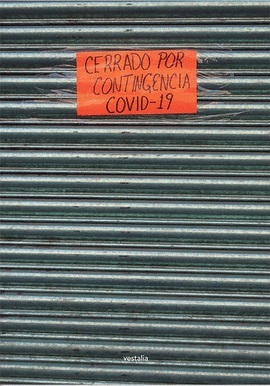 CERRADO POR
CONTINGENCIA
COVID-19
vestalia